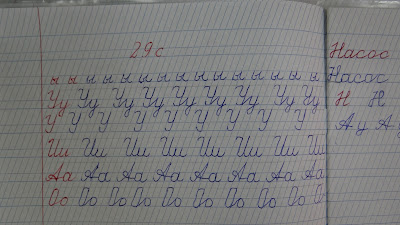 29 с
ы ы ы ы ы ы ы ы ы ы ы ы ы ы ы
Уу Уу Уу Уу Уу Уу Уу Уу Уу
У У У У У У У У У
Ии Ии Ии Ии Ии Ии Ии Ии
Аа Аа Аа Аа Аа Аа Аа Аа
Оо Оо Оо Оо Оо Оо Оо Оо Оо Оо
Насос
Насос
Н Н
А у А